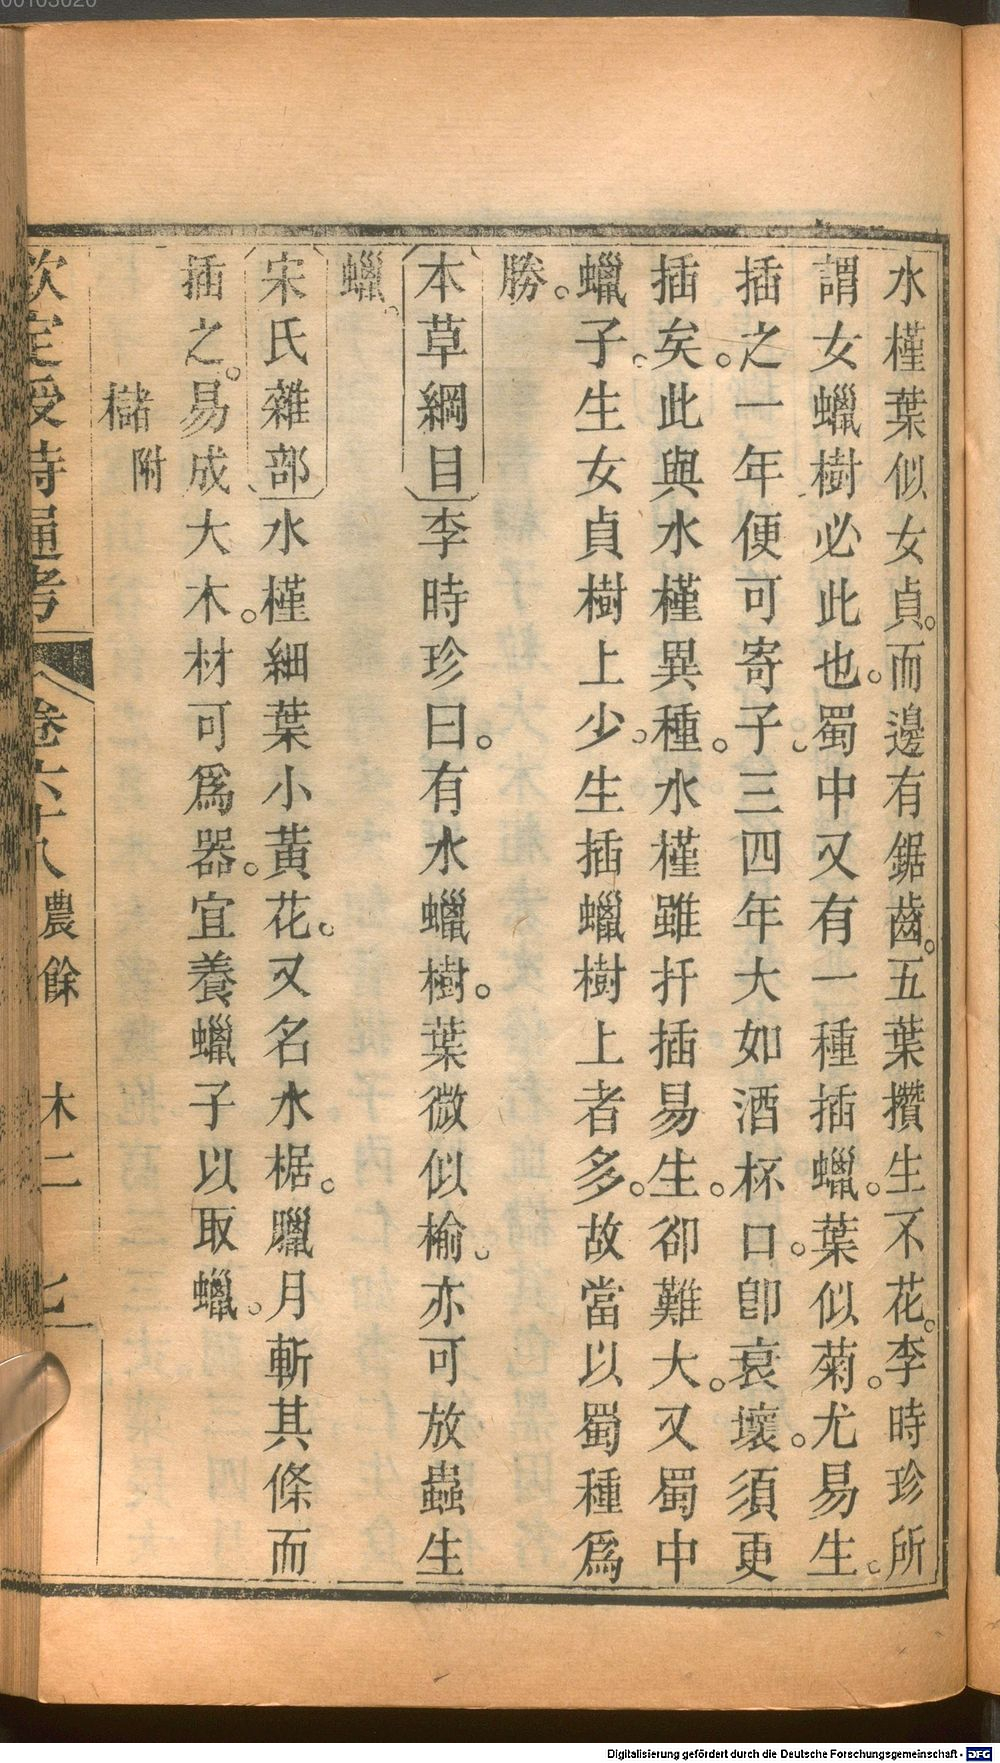 水槿葉似女貞。而邊有鋸齒。五葉攢生不花。李時珍所
謂女蠟樹必此也。蜀中又有一種插蠟。葉似菊。尤易生。
插之一年便可寄子。三四年大如酒杯口。卽衰壞。須更
插矣。此與水槿異種。水槿雖扦插易生。卻難大。又蜀中
蠟子。生女貞樹上少。生插蠟樹上者多。故當以蜀種爲
勝。
本草綱目李時珍曰。有水蠟樹。葉微似榆。亦可放蟲生
蠟。
宋氏雜部水槿細葉小黃花。又名水椐。臘月斬其條而
插之。易成大木。材可爲器。宜養蠟子以取蠟。
櫧附
欽定授時通考 卷六十八農餘 木二 七
00103020
Digitalisierung gefördert durch die Deutsche Forschungsgemeinschaft - DFG